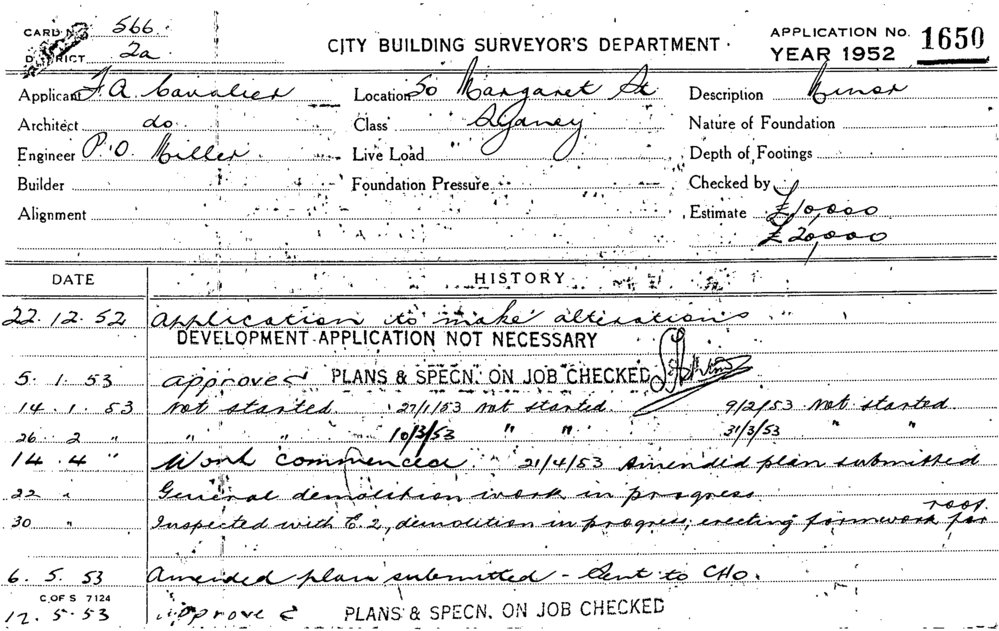 CARD No. 566.
DISTRICT 2a
CITY BUILDING SURVEYOR'S DEPARTMENT.
APPLICATION No. 1650
YEAR 1952
Applicant F. A. Cavalier Location 50 Margaret St Description Minor
Architect do Class Sydney Nature of Foundation
Engineer P. O. Miller Live Load " Depth of Footings
Builder Foundation Pressure Checked by
Alignment Estimate £10,000
£20,000
DATE HISTORY
22.12.52 Application to make alterations
DEVELOPMENT APPLICATION NOT NECESSARY
5.1.53 approved PLANS & SPECN. ON JOB CHECKED
14.1.53 Not started. 27/1/53 Not started. 9/2/53 Not started.
26 2 " " " 10/3/53 " " 31/3/53 " "
14.4 " Work commenced " 21/4/53 Amended plan submitted
22 " General demolition work in progress
30 " Inspected with E.2, demolition in progress, erecting formwork for roof.
6.5.53 Amended plan submitted - Sent to CHO.
C OF S 7124
12.5.53 approved PLANS & SPECN. ON JOB CHECKED